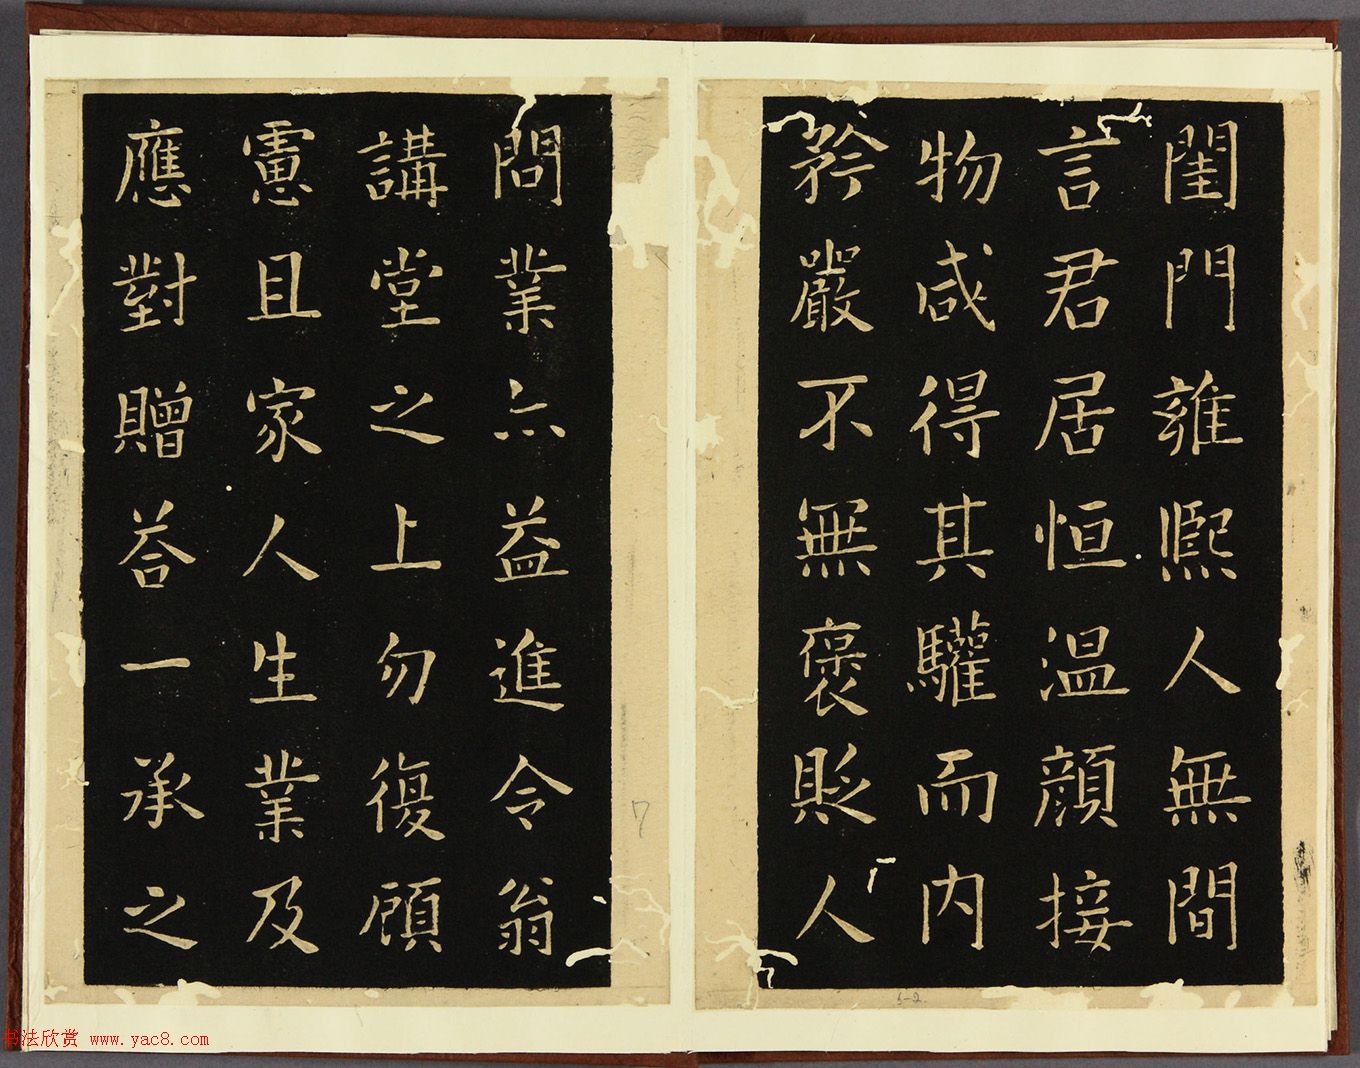 閨門雍熙人無間
言君居恒温顔接
物咸得其驩而内
矜嚴不無褒貶人
問業亦益進令翁
講堂之上勿復顧
慮且家人生業及
應對贈荅一承之
7
5-2.
书法欣赏 www.yac8.com